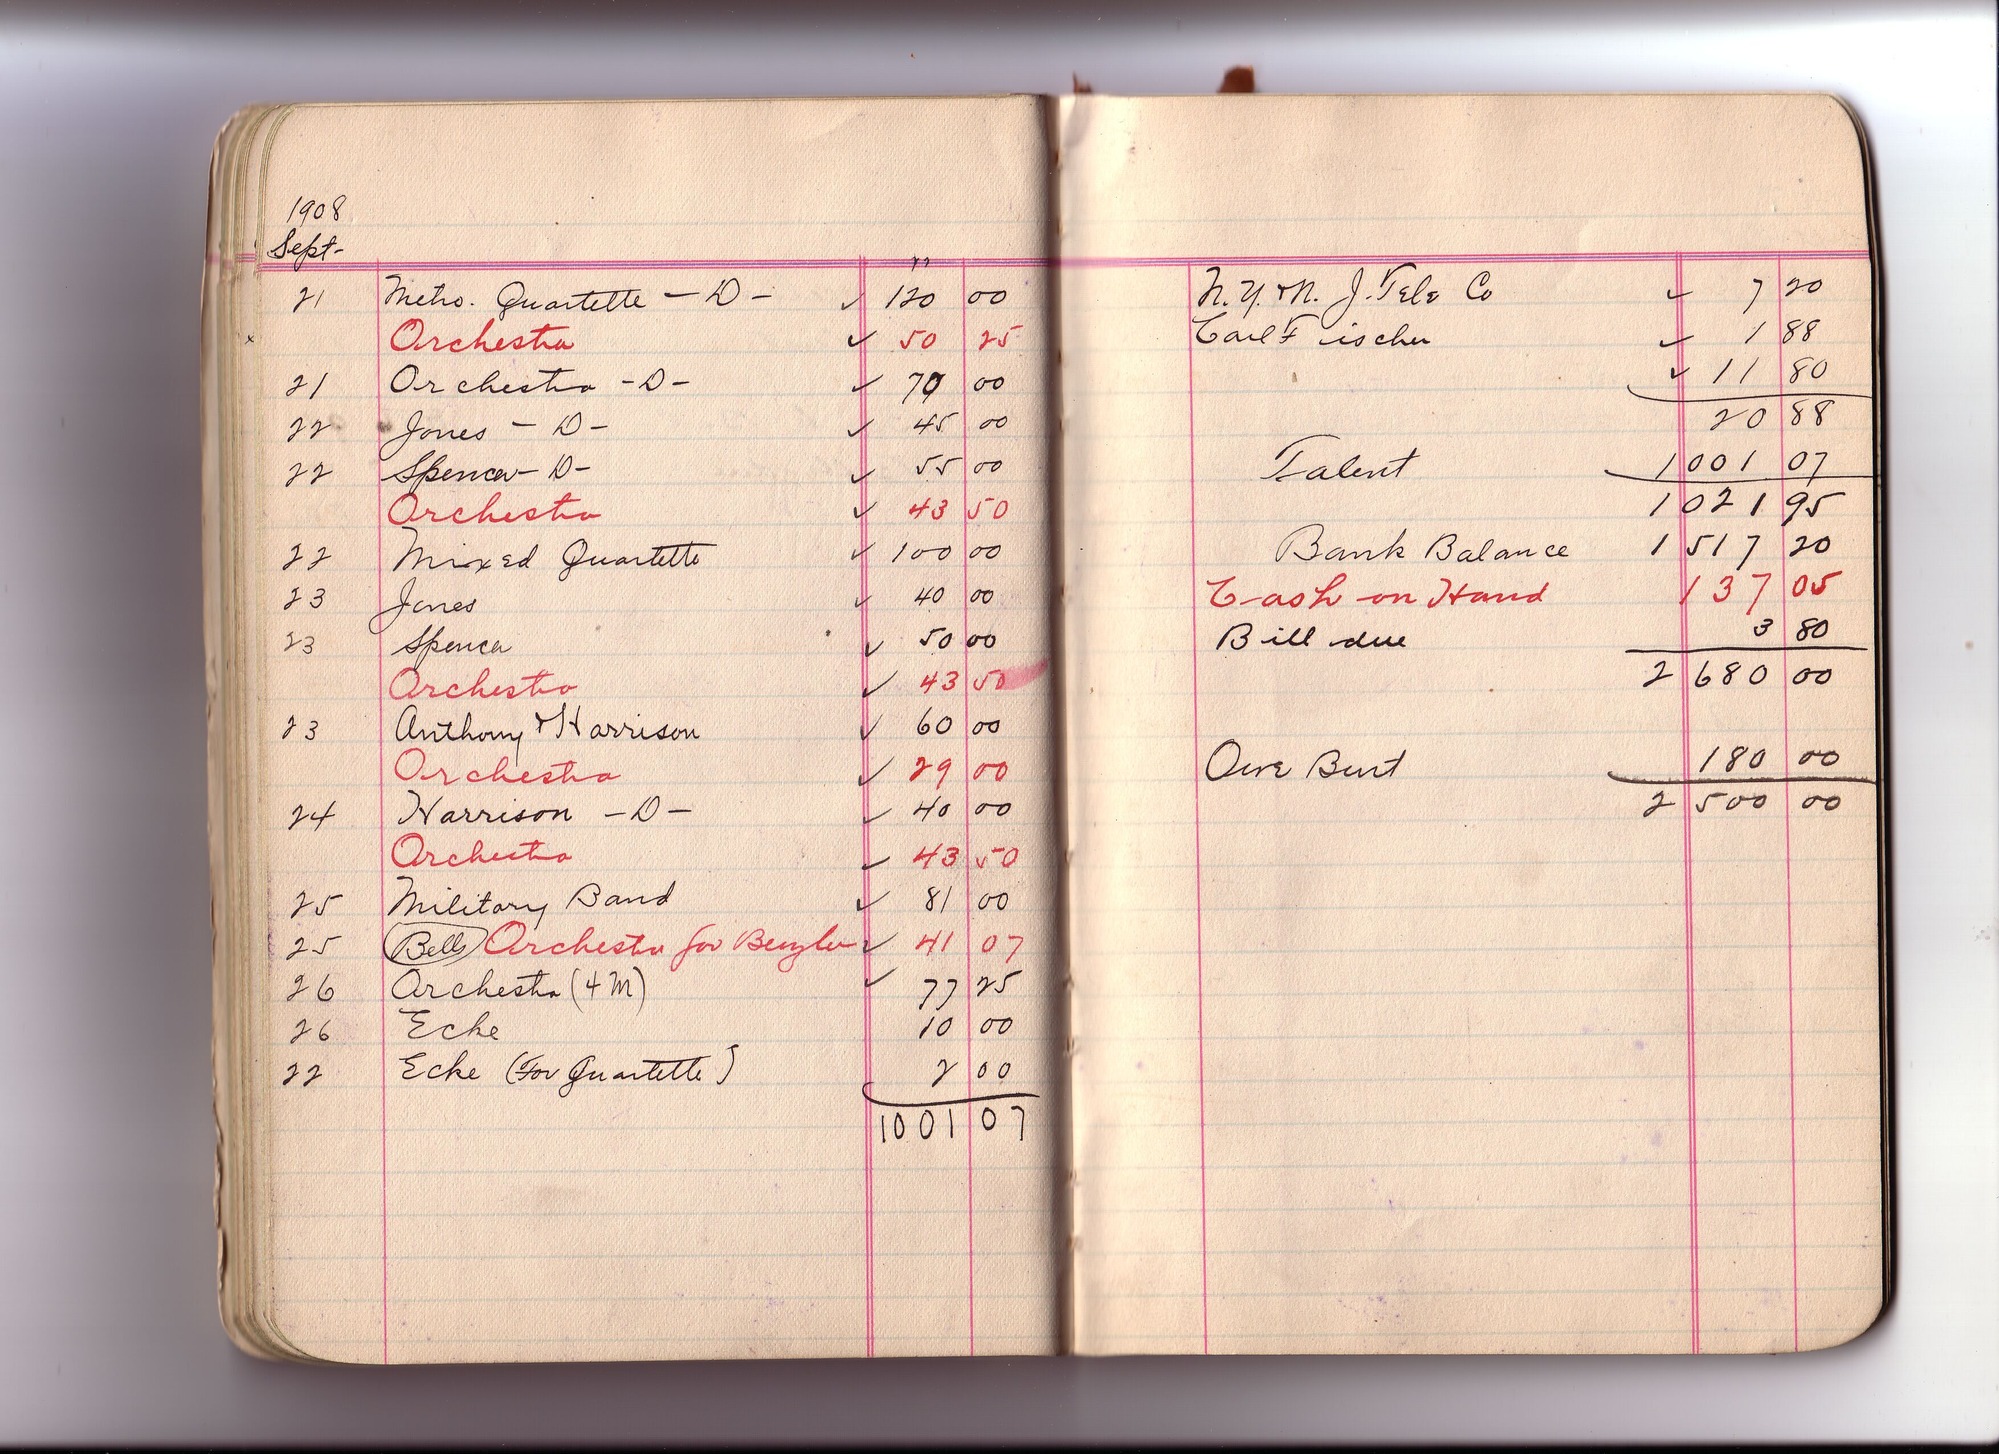 1908
Sept-
21 Metro. Quartette - D - ✓ 120 00
Orchestra ✓ 50 25
21 Orchestra - D - ✓ 70 00
22 Jones - D - ✓ 45 00
22 Spencer - D - ✓ 55 00
Orchestra ✓ 43 50
22 Mixed Quartette ✓ 100 00
23 Jones ✓ 40 00
23 Spencer ✓ 50 00
Orchestra ✓ 43 50
23 Anthony & Harrison ✓ 60 00
Orchestra ✓ 29 00
24 Harrison - D - ✓ 40 00
Orchestra ✓ 43 50
25 Military Band ✓ 81 00
25 Bells Orchestra for Benzler ✓ 41 07
26 Orchestra (4 M) ✓ 77 25
26 Ecke 10 00
22 Ecke (For Quartette) 2 00
1001 07
N. Y. & N. J. Tele Co ✓ 7 20
Carl Fischer ✓ 1 88
✓ 11 80
20 88
Talent 1001 07
1021 95
Bank Balance 1517 20
Cash on Hand 137 05
Bill due 3 80
2680 00
Owe Burt 180 00
2500 00